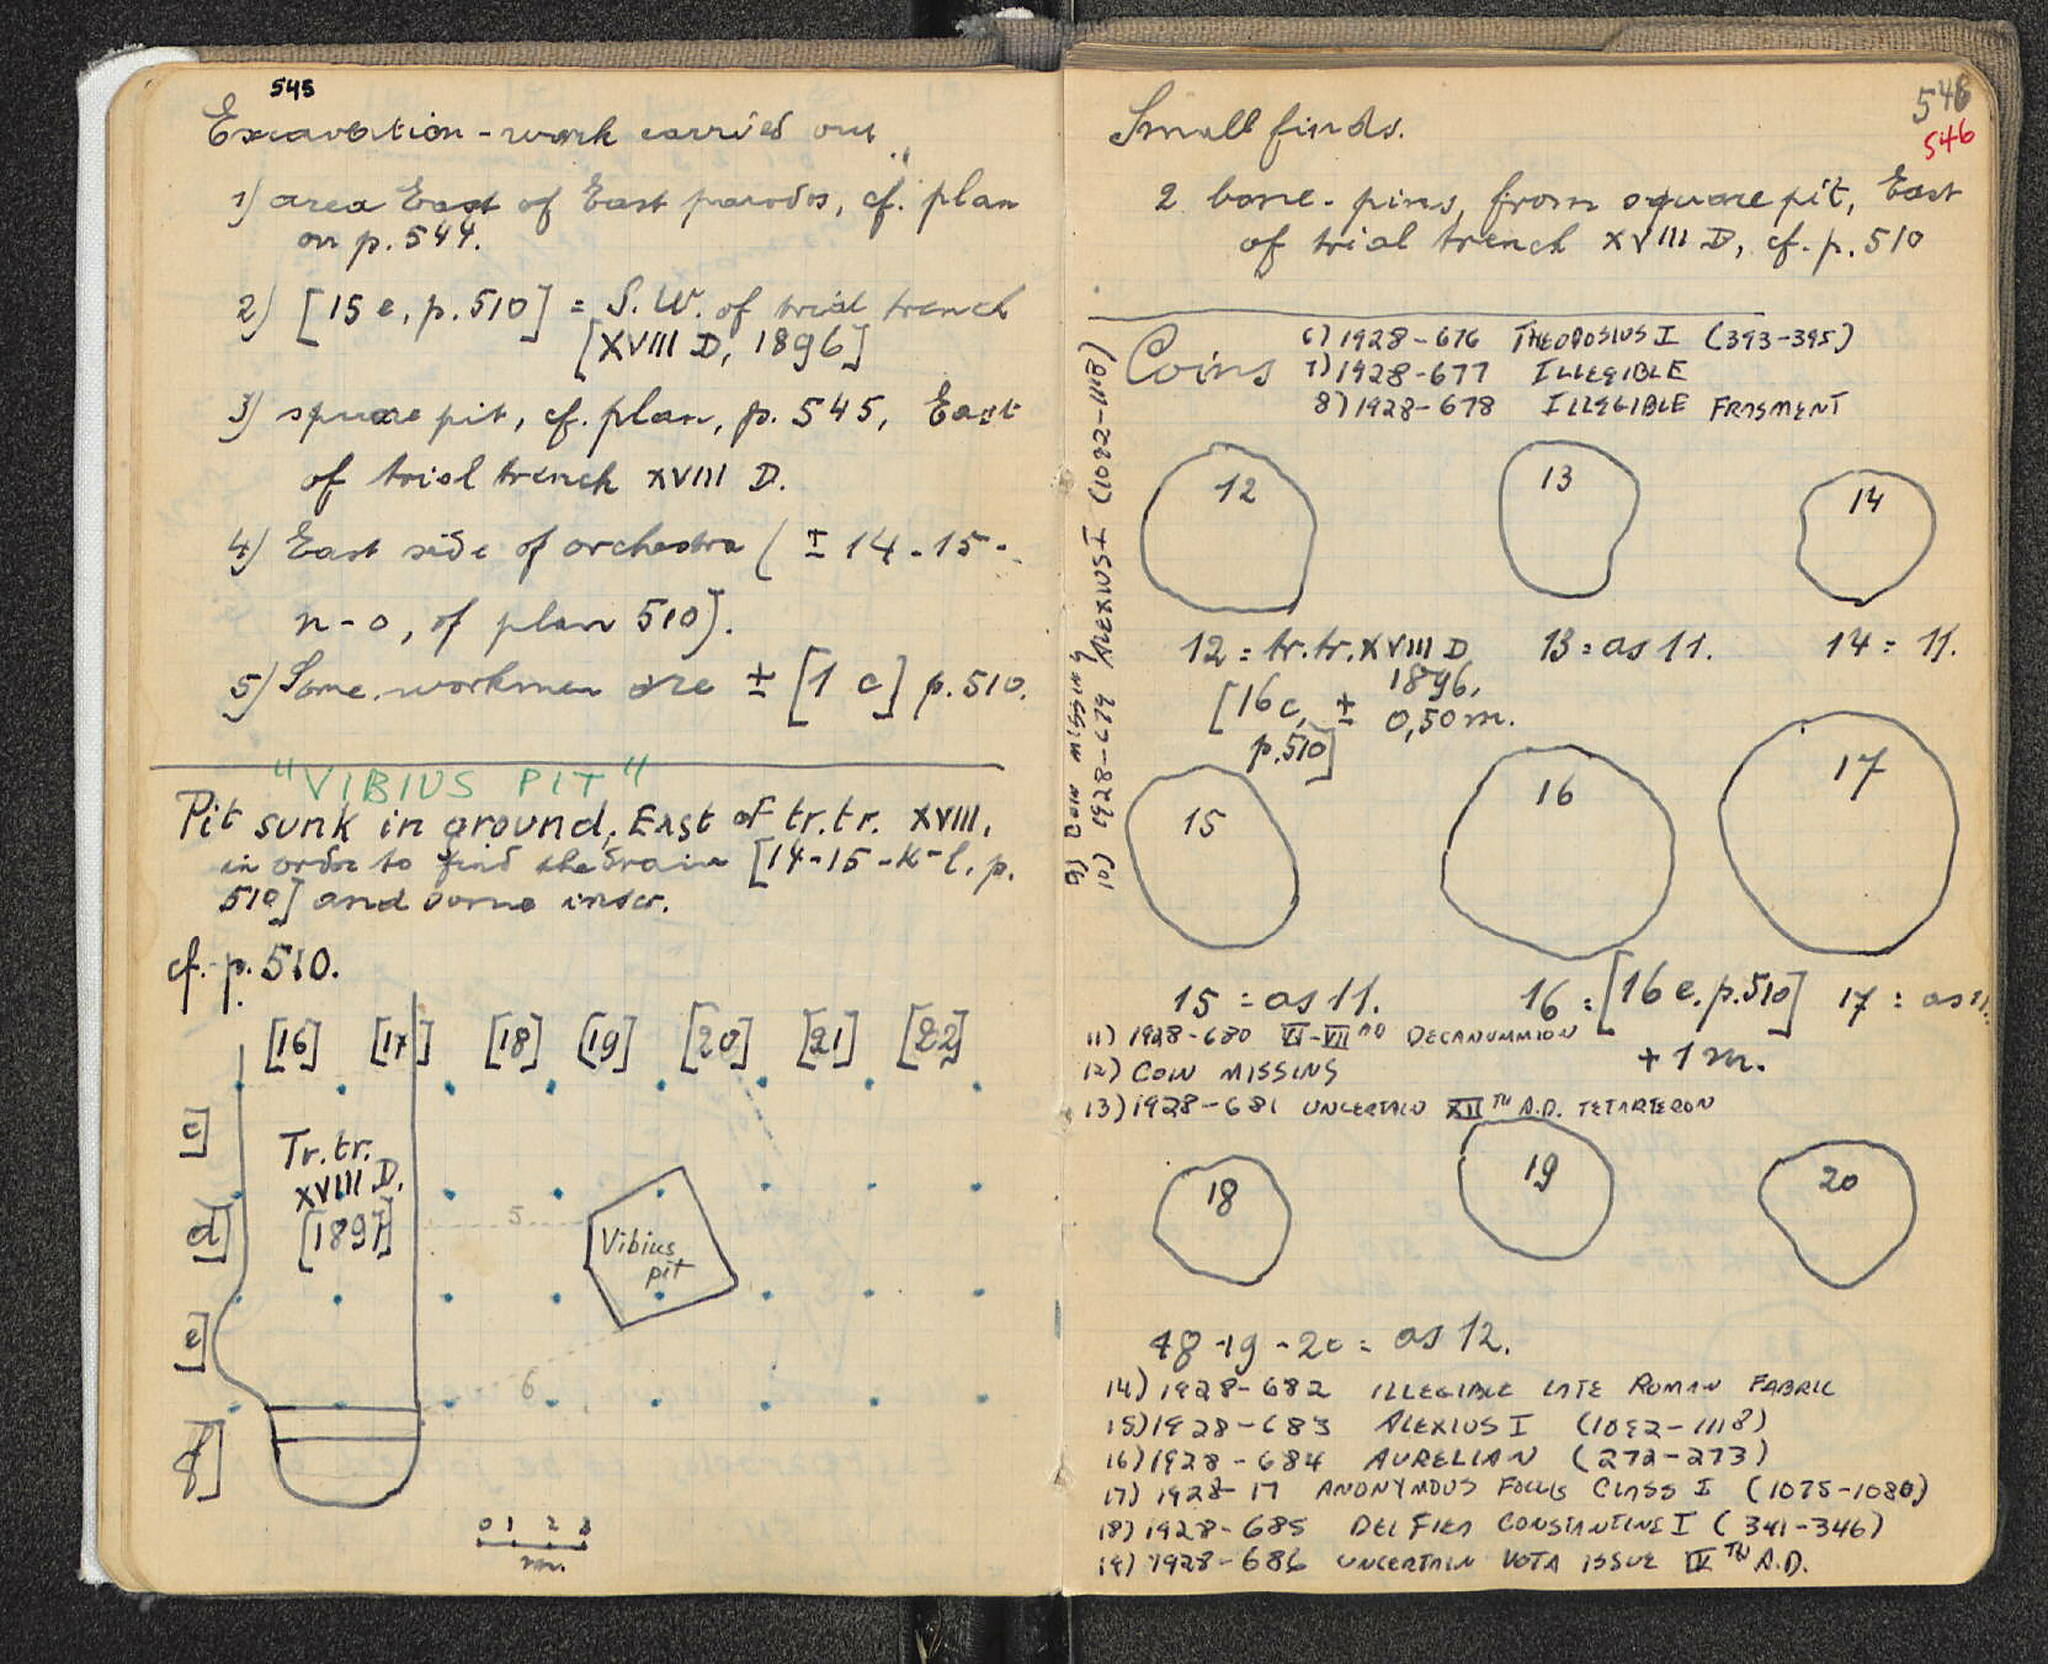 545
Excavation-work carried out
1) area East of East parodos, cf. plan
on p. 544.
2) [15 e, p. 510] = S.W. of trial trench
[XVIII D, 1896]
3) square pit, cf. plan, p. 545, East
of trial trench XVIII D.
4) East side of orchestra ( ± 14-15-
n-o, of plan 510).
5) Some workmen are ± [1 c] p. 510.
"VIBIUS PIT"
Pit sunk in ground, East of tr.tr. XVIII,
in order to find the drain [14-15-K-l, p.
510] and some inscr.
cf. p. 510.
[16] [17] [18] [19] [20] [21] [22]
[c]
Tr.tr.
XVIII D,
[d]
[1897]
5
Vibius
pit
[e]
6
[f]
0 1 2 3
m.
546
546
Small finds.
2 bone-pins, from square pit, East
of trial trench XVIII D, cf. p. 510
Coins
6) 1928-676 THEODOSIUS I (393-395)
7) 1928-677 ILLEGIBLE
8) 1928-678 ILLEGIBLE FRAGMENT
9) COIN MISSING
10) 1928-679 ALEXIUS I (1092-1118)
12 13 14
12 = tr.tr. XVIII D 13 = as 11. 14 = 11.
1896,
[16 c, ± 0,50 m.
p. 510]
15 16 17
15 = as 11. 16 = [16 e. p. 510] 17 = as 11.
+ 1 m.
11) 1928-680 VI-VII AD DECANUMMION
12) COIN MISSING
13) 1928-681 UNCERTAIN XII TH A.D. TETARTERON
18 19 20
18-19-20 = as 12.
14) 1928-682 ILLEGIBLE LATE ROMAN FABRIC
15) 1928-683 ALEXIUS I (1092-1118)
16) 1928-684 AURELIAN (272-273)
17) 1928-17 ANONYMOUS FOLLIS CLASS I (1075-1080)
18) 1928-685 DEIFIED CONSTANTINE I (341-346)
19) 1928-686 UNCERTAIN VOTA ISSUE IV TH A.D.